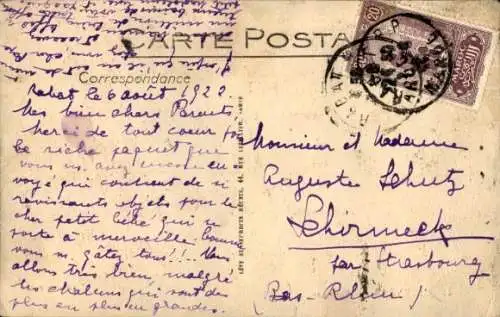 CARTE POSTALE
Correspondance
Rabat le 6 août 1922
Mes bien chers Parents
Merci de tout coeur pour
le riche paquet que
vous m'avez encore en
voyé qui contient de si
ravissants objets pour le
cher petit bébé qui se
porte à merveille. Comme
vous n. gâtez tous!!! Nous
allons très bien, malgré
les chaleurs qui sont de
plus en plus grandes.
LÉVY ET NEURDEIN RÉUNIS, 44, RUE LETELLIER, PARIS
Monsieur et Madame
Auguste Schutz
Schirmeck
par Strasbourg
(Bas-Rhin)
20
RABAT
MAROC